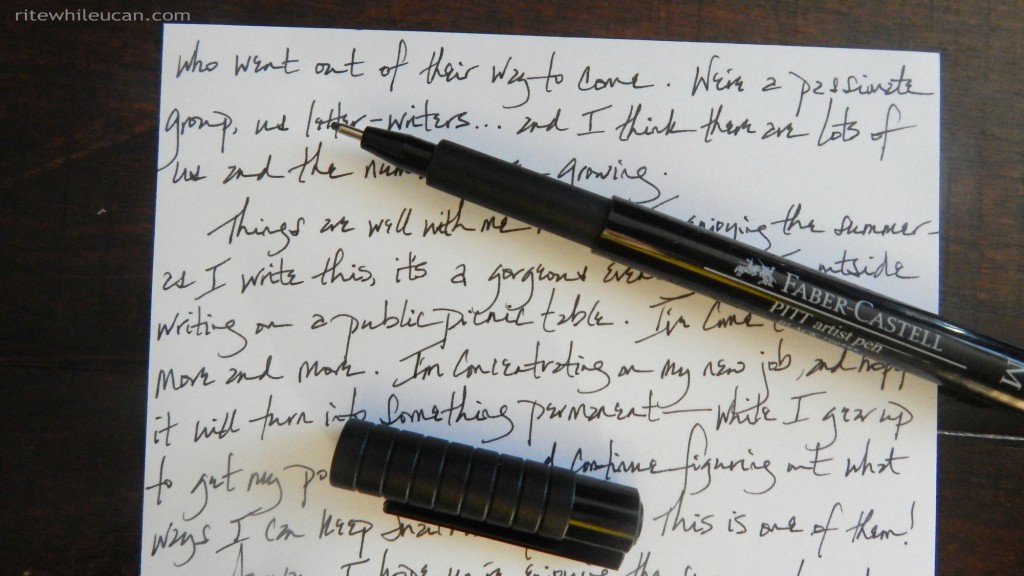 ritewhileucan.com
who went out of their way to come. We're a passionate
group, us letter-writers... and I think there are lots of
us and the growing.
Things are well with me enjoying the summer-
as I write this, it's a gorgeous outside
writing on a public picnic table. I've come
more and more. I'm concentrating on my new job, and
it will turn into something permanent— while I gear up
to get my continue figuring out what
ways I can keep This is one of them!
I hope you're enjoying the
FABER-CASTELL
PITT artist pen
M